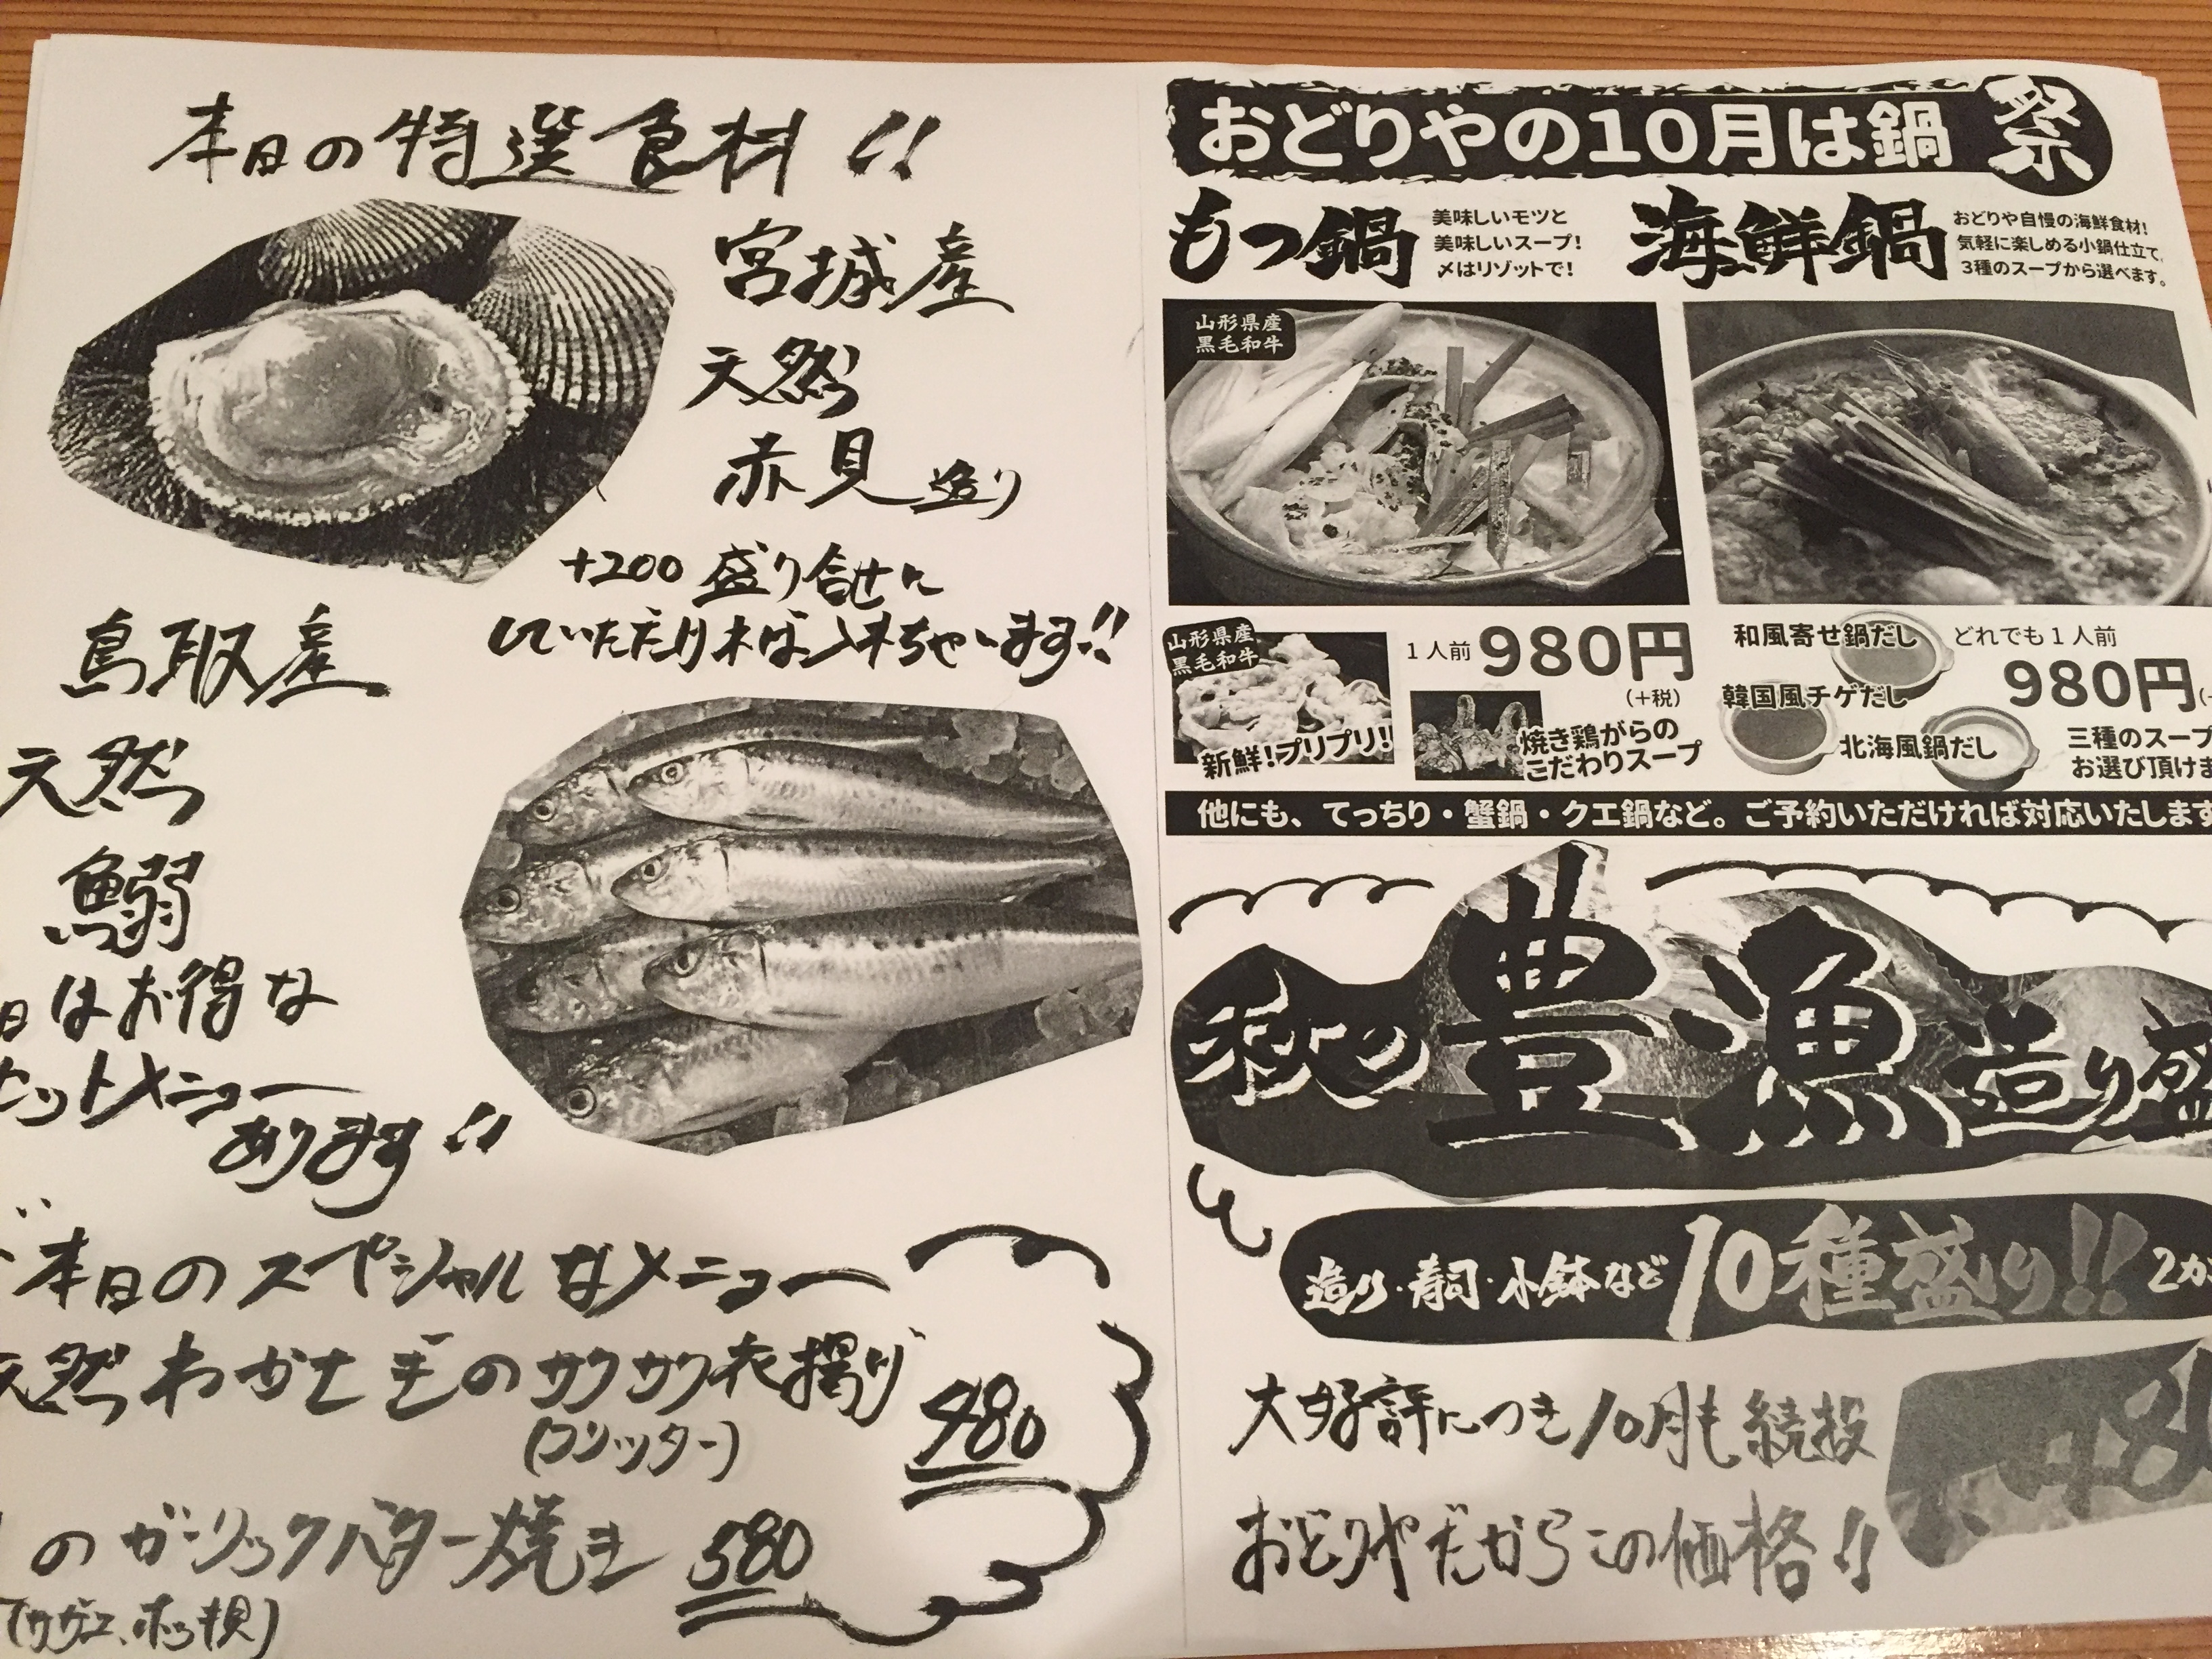 本日の特選食材!!
宮城産
天然
赤貝造り
+200 盛り合せに
していただければ入れちゃいます!!
鳥取産
天然
鰯
日はお得な
セットメニュー
あります!!
本日のスペシャルなメニュー
天然わかさぎのサクサク衣揚げ
(フリッター)
480
のガーリックバター焼き 580
(サザエ、ホッキ貝)
おどりやの10月は鍋祭
もつ鍋
美味しいモツと
美味しいスープ!
〆はリゾットで!
海鮮鍋
おどりや自慢の海鮮食材!
気軽に楽しめる小鍋仕立て。
3種のスープから選べます。
山形県産
黒毛和牛
山形県産
黒毛和牛
新鮮!プリプリ!
1人前 980円
(+税)
焼き鶏がらの
こだわりスープ
和風寄せ鍋だし
韓国風チゲだし
北海風鍋だし
どれでも1人前
980円
三種のスープ
お選び頂けま
他にも、てっちり・蟹鍋・クエ鍋など。ご予約いただければ対応いたします
秋の豊漁造り盛
造り・寿司・小鉢など10種盛り!!
大好評につき10月も続投
おどりやだからこの価格!!